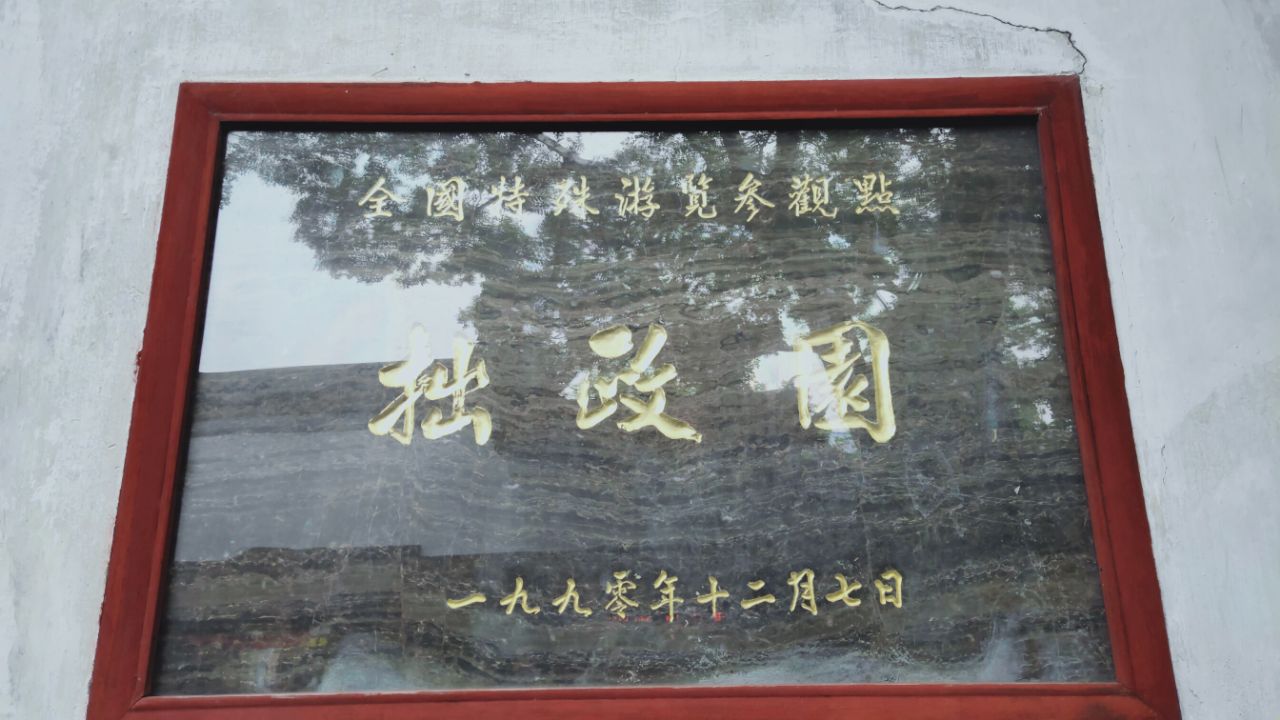 全國特殊游覽參觀點
拙政園
一九九零年十二月七日